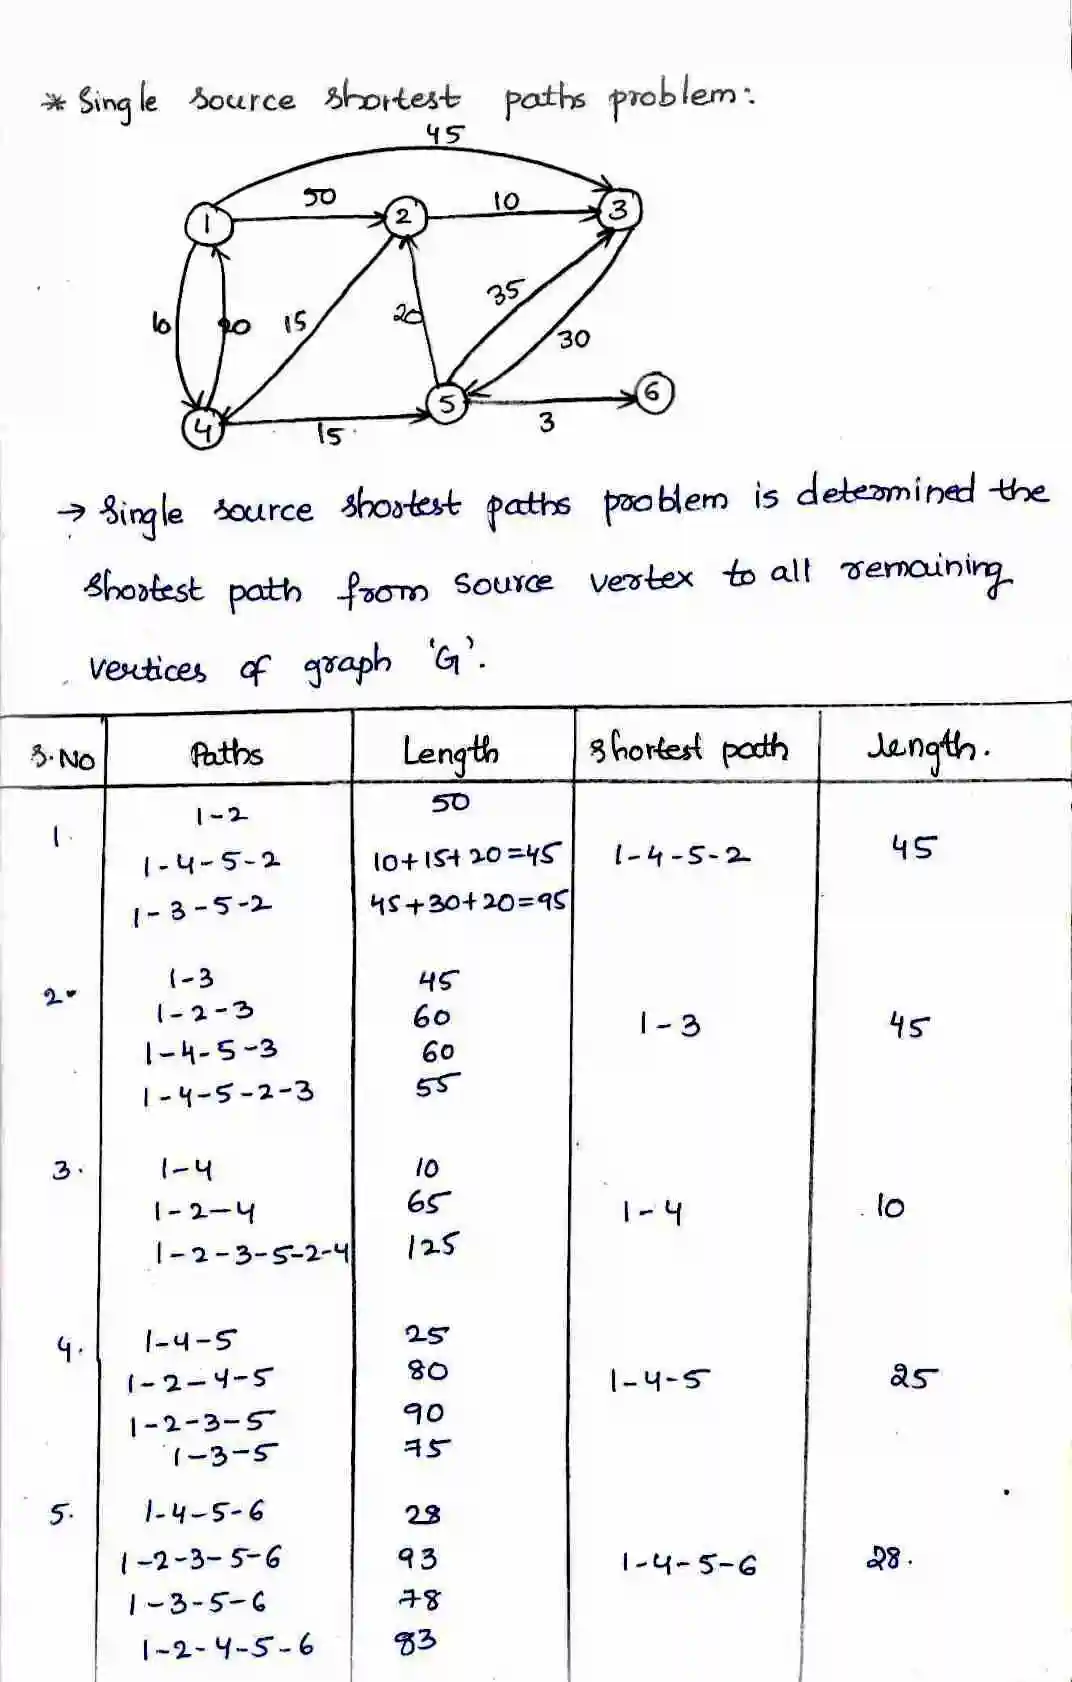 * Single source shortest paths problem:
45
50
10
1
2
3
10
20
15
20
35
30
4
15
5
3
6
→ Single source shortest paths problem is determined the
shortest path from source vertex to all remaining
vertices of graph 'G'.
S.No Paths Length shortest path length.
1. 1-2 50
1-4-5-2 10+15+20=45 1-4-5-2 45
1-3-5-2 45+30+20=95
2. 1-3 45
1-2-3 60 1-3 45
1-4-5-3 60
1-4-5-2-3 55
3. 1-4 10
1-2-4 65 1-4 10
1-2-3-5-2-4 125
4. 1-4-5 25
1-2-4-5 80 1-4-5 25
1-2-3-5 90
1-3-5 75
5. 1-4-5-6 28
1-2-3-5-6 93 1-4-5-6 28.
1-3-5-6 78
1-2-4-5-6 83